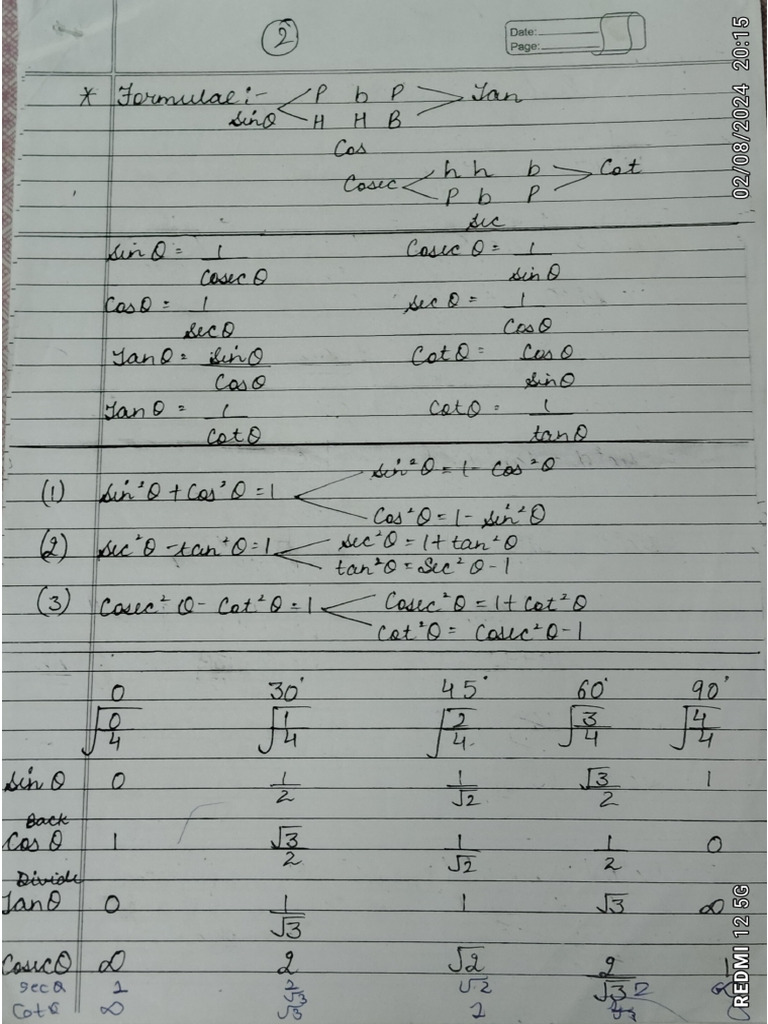 2
Date:
Page:
* Formulae :- P b P Tan
sinθ H H B
Cos
Cosec h h b Cot
P b P
sec
sinθ = 1/cosecθ Cosecθ = 1/sinθ
Cosθ = 1/secθ secθ = 1/Cosθ
Tanθ = sinθ/Cosθ Cotθ = Cosθ/sinθ
Tanθ = 1/cotθ Cotθ = 1/tanθ
sin²θ = 1 - Cos²θ
(1) sin²θ + Cos²θ = 1
Cos²θ = 1 - sin²θ
(2) sec²θ - tan²θ = 1 sec²θ = 1 + tan²θ
tan²θ = Sec²θ - 1
(3) Cosec²θ - Cot²θ = 1 Cosec²θ = 1 + Cot²θ
Cot²θ = Cosec²θ - 1
0 30° 45° 60° 90°
√(0/4) √(1/4) √(2/4) √(3/4) √(4/4)
sinθ 0 1/2 1/√2 √3/2 1
Back
Cosθ 1 √3/2 1/√2 1/2 0
Divide
Tanθ 0 1/√3 1 √3 ∞
Cosecθ ∞ 2 √2 2/√3 1
secθ 1 √2 2
Cotθ ∞ √3 1
02/08/2024 20:15
REDMI 12 5G